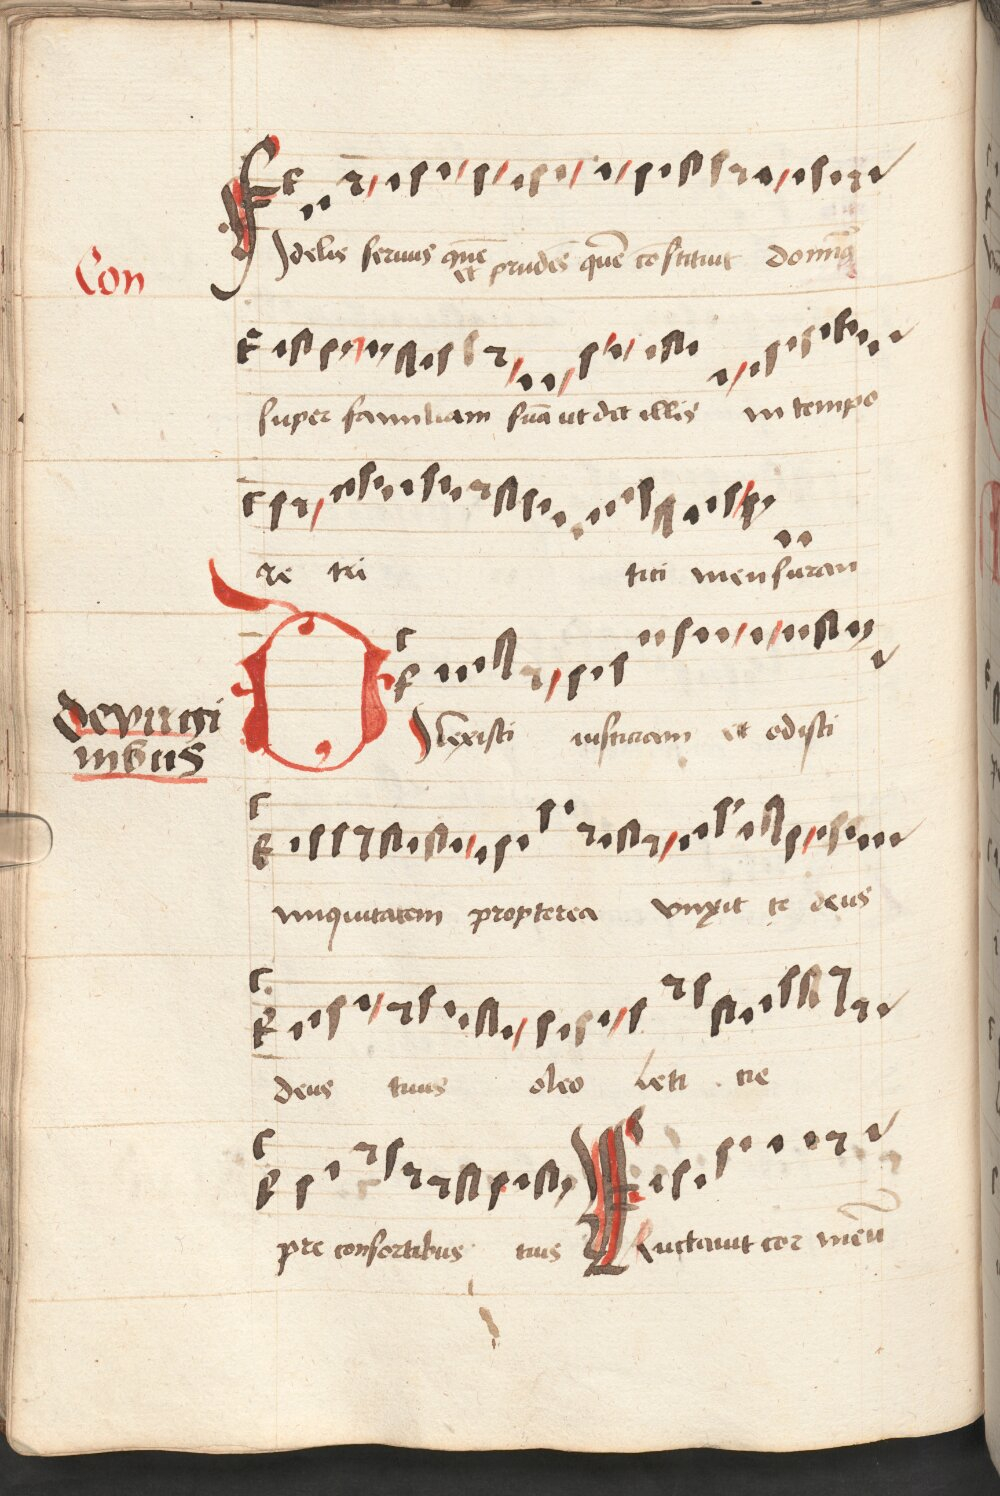 Con
Fidelis seruus quē et prudēs quē cōstituit domin9
super familiam suā ut det illis in tempo
re tri tici mensuram
de virgi
nibus
Dilexisti iusticiam et odisti
iniquitatem propterea vnxit te deus
deus tuus oleo leti cie
pre consortibus tuis Eructauit cor meū